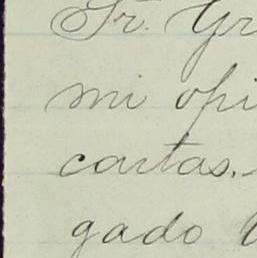 Sr. Gr
mi opi
cartas.-
gado